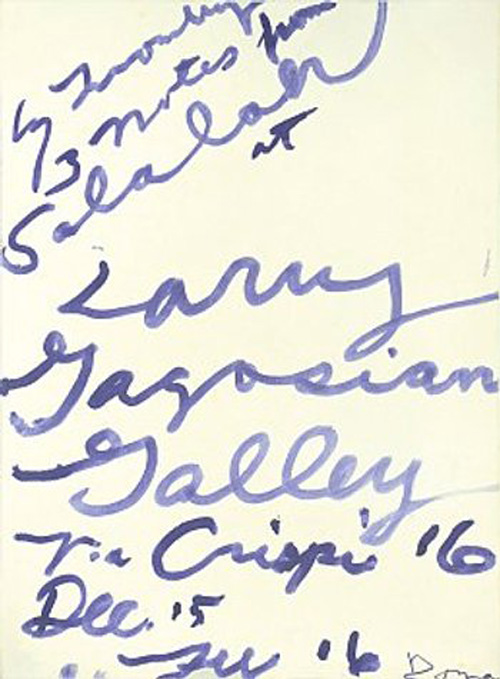 Cy Twombly
3 Notes from
Salalah
at
Larry
Gagosian
Galley
Via Crispi '16
Dec. 15
'16